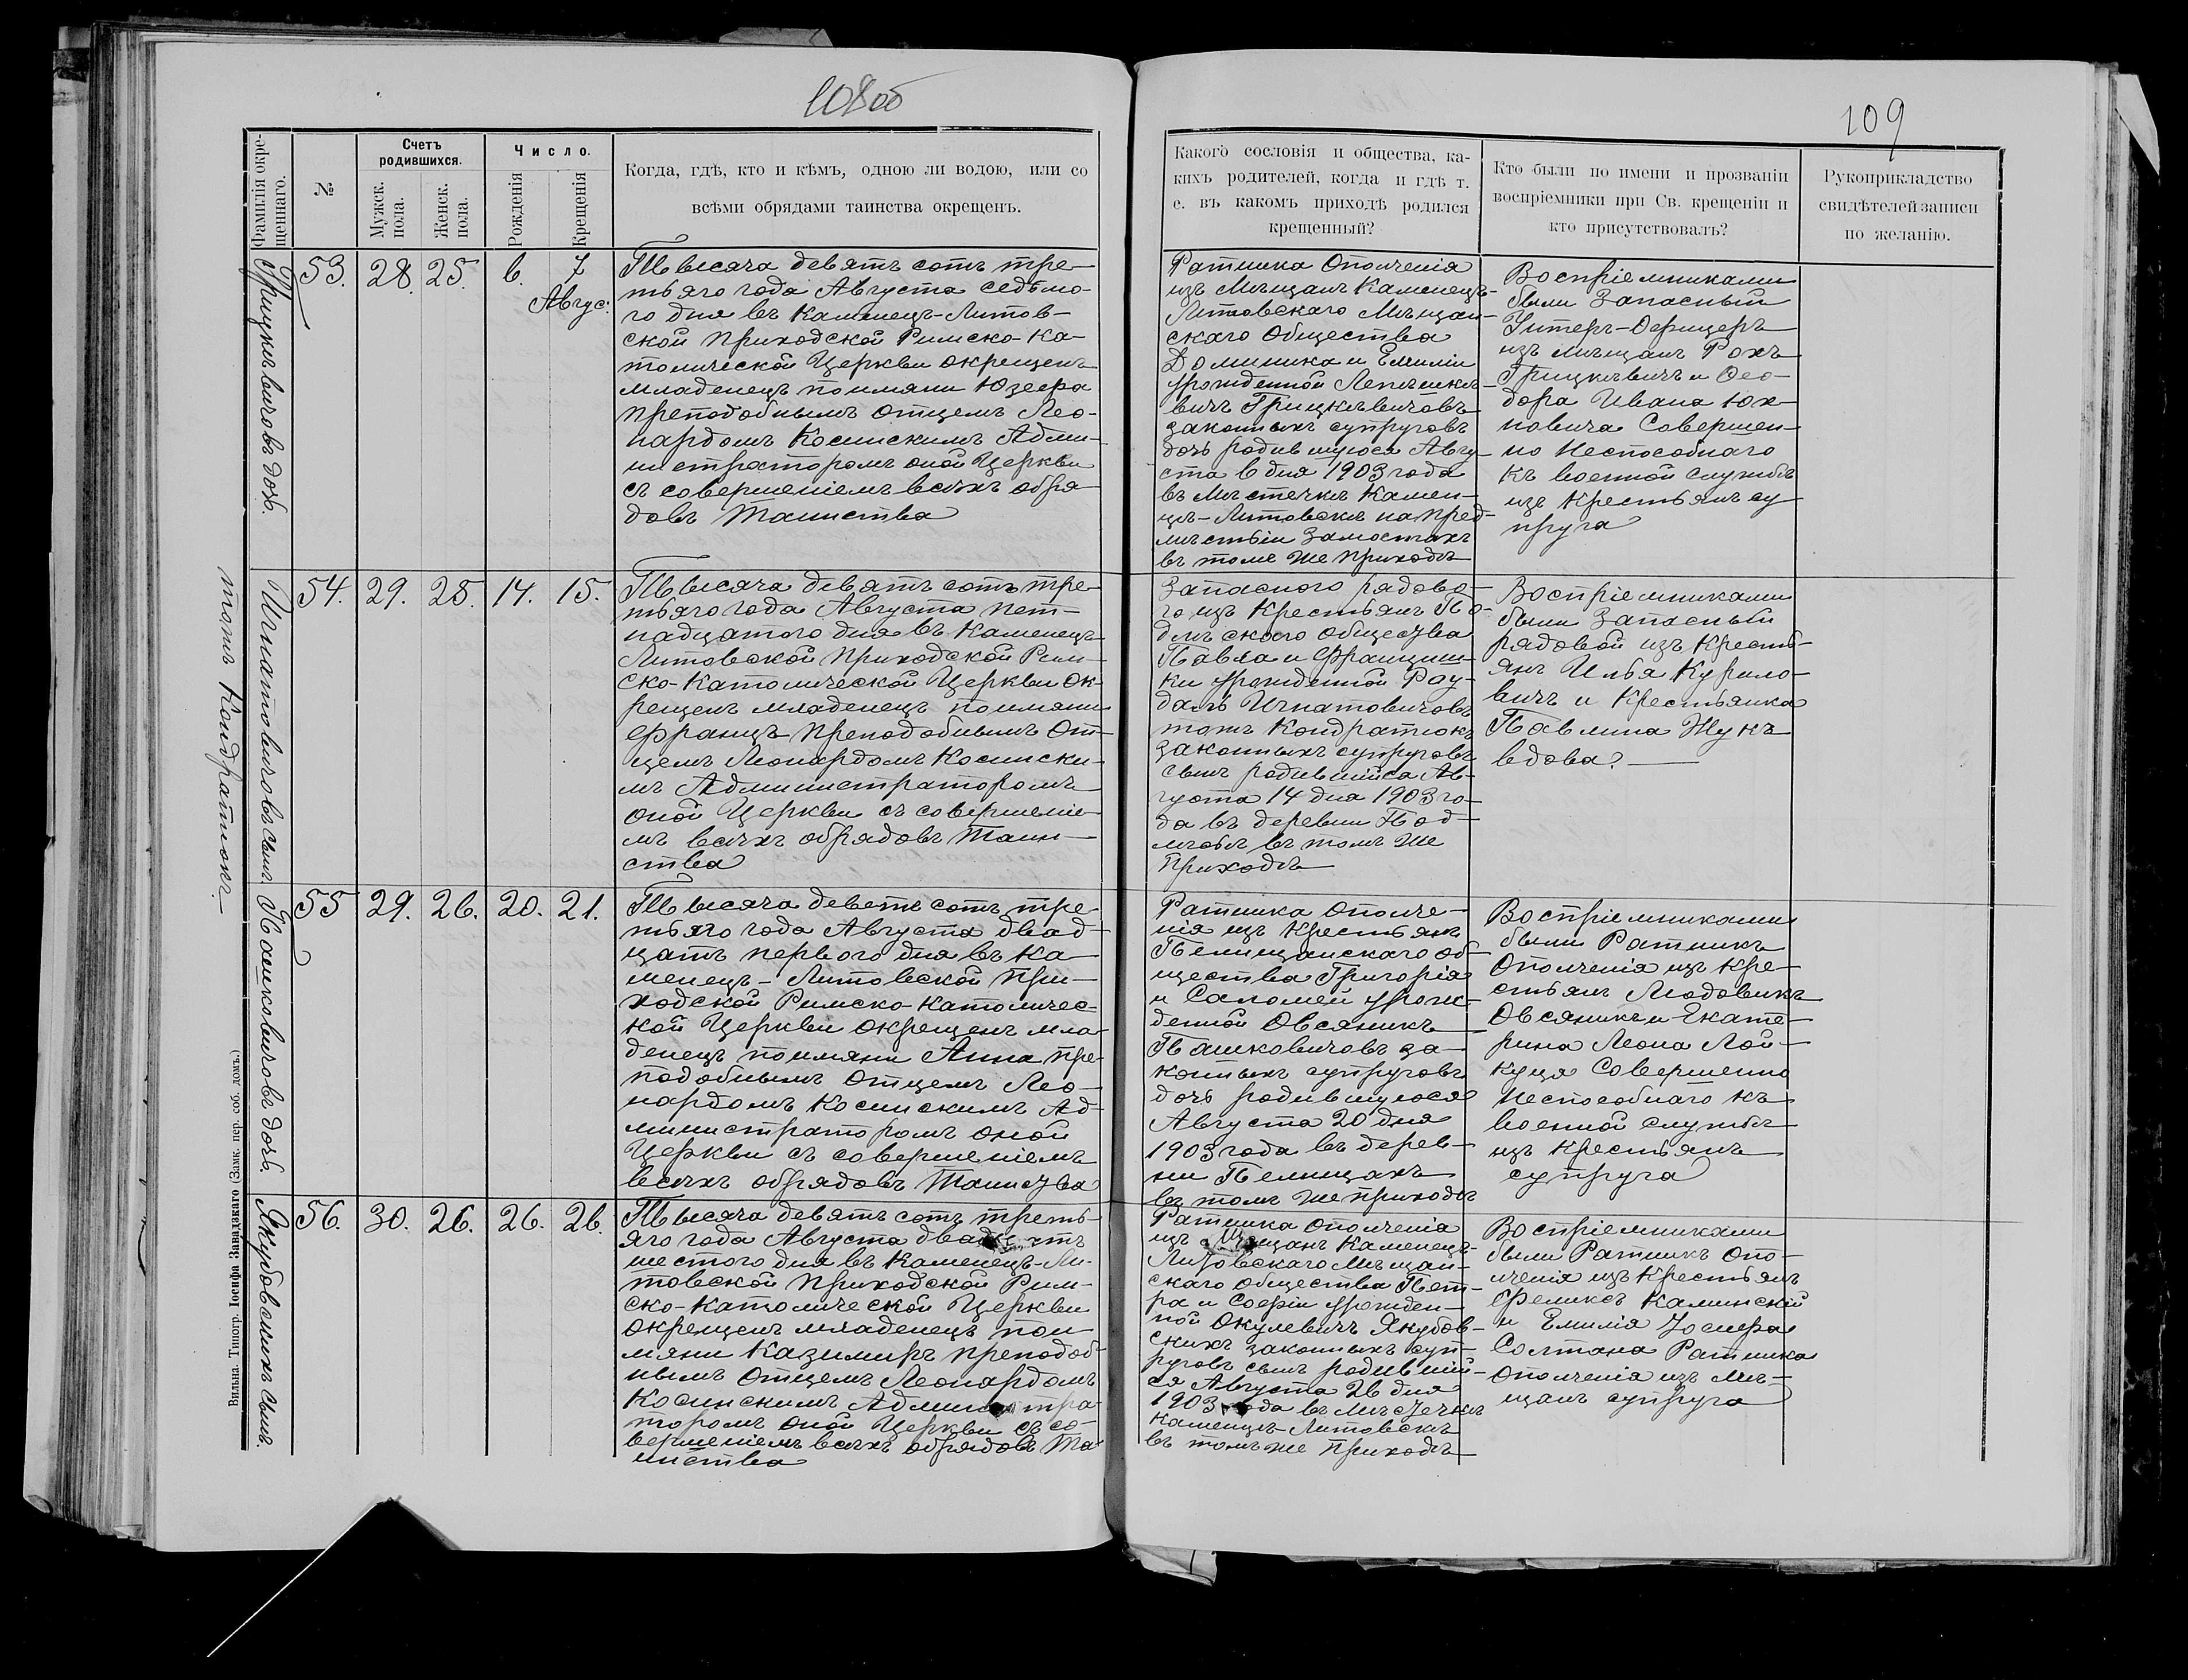 108об
109
Фамилія окре-
щеннаго.
№
Счетъ
родившихся.
Мужск.
пола.
Женск.
пола.
Число.
Рожденія
Крещенія
Когда, гдѣ, кто и кѣмъ, одною ли водою, или со
всѣми обрядами таинства окрещенъ.
Какого сословія и общества, ка-
кихъ родителей, когда и гдѣ т.
е. въ какомъ приходѣ родился
крещенный?
Кто были по имени и прозванію
воспріемники при Св. крещеніи и
кто присутствовалъ?
Рукоприкладство
свидѣтелей записи
по желанію.
Грицкѣвичовъ дочь.
53. 28. 25. 6. 7
Авгус:
Тысяча девятъ сотъ тре-
тьяго года Августа седьмо-
го дня въ Каменецъ-Литов-
ской приходской Римско-Ка-
толической Церкви окрещенъ
младенецъ поимяни Юзефа
преподобнымъ отцемъ Лео-
нардомъ Косинскимъ Адми-
нистраторомъ оной Церкви
съ совершеніемъ всѣхъ обря-
довъ Таинства
Ратника Ополченія
изъ Мѣщанъ Каменецъ-
Литовскаго Мѣщан-
скаго общества
Доминика и Емиліи
урожденной Лепешке-
вичъ Грицкѣвичовъ
законныхъ супруговъ
дочь родившуюся Авгу-
ста 6 дня 1903 года
въ Мѣстечкѣ Камен-
цѣ-Литовскѣ на пред-
мѣстьи Замостахъ
въ томъ же приходѣ
Воспріемниками
были Запасный
Унтеръ-Офицеръ
изъ мѣщанъ Рохъ
Грицкевичъ и Фео-
дора Ивана Юх-
новича Совершен-
но Неспособнаго
къ военной службѣ
изъ Крестьянъ су
пруга
Игнатовичовъ сынъ.
тожъ Кондратюкъ.
54. 29. 25. 14. 15.
Тысяча девятъ сотъ тре-
тьяго года Августа пят-
надцатого дня въ Каменецъ-
Литовской приходской Рим-
ско-Католической Церкви ок-
рещенъ младенецъ поимяни
Францъ преподобнымъ От-
цемъ Леонардомъ Косински-
мъ Администраторомъ
оной Церкви съ совершеніе-
мъ всѣхъ обрядовъ Таин-
ства
Запасного рядово-
го изъ Крестьянъ По-
дльскаго общества
Павла и Францишки
ки урожденной Роу-
далъ Игнатовичовъ
тожъ Кондратюкъ
законныхъ супруговъ
сынъ родившійся Ав-
густа 14 дня 1903 го-
да въ деревни Под-
въ томъ же
приходѣ
Воспріемниками
были Запасный
рядовой изъ Кресть-
янъ Илья Курило-
вичъ и Крестьянка
Павлина Жукъ
вдова.
Пашковичовъ дочь.
55 29. 26. 20. 21.
Тысяча деветъ сотъ тре-
тьяго года Августа двад-
цать первого дня въ Ка-
менецъ-Литовской при-
ходской Римско-католичес-
кой Церкви окрещенъ мла-
денецъ поимяни Анна пре-
подобнымъ Отцемъ Лео-
нардомъ Косинскимъ Ад-
министраторомъ оной
Церкви съ совершеніемъ
всѣхъ обрядовъ Таинства
Ратника Ополче-
нія изъ Крестьянъ
Пелищанскаго об-
щества Григорія
и Саломеи урож-
денной Овсяникъ
Пашковичовъ за-
конныхъ супруговъ
дочь родившуюся
Августа 20 дня
1903 года въ дерев-
ни Пелищахъ
въ томъ же приходѣ
Воспріемниками
были Ратникъ
Ополченія изъ Кре-
стьянъ Людовикъ
Овсяникъ и Екате-
рина Леона Лой-
куця Совершенно
Неспособнаго къ
военной службѣ
изъ Крестьянъ
супруга
Якубовскихъ сынъ.
56. 30. 26. 26. 26.
Тысяча девятъ сотъ треть-
яго года Августа двадцать
шестого дня въ Каменецъ-Ли-
товской приходской Рим-
ско-Католической Церкви
окрещенъ младенецъ пои
мяни Казимиръ преподоб-
нымъ Отцемъ Леонардомъ
Косинскимъ Администра
торомъ оной Церкви съ со-
вершеніемъ всѣхъ обрядовъ Та
инства
Ратника Ополченія
изъ Мѣщанъ Каменецъ-
Литовскаго Мѣщан-
скаго общества Пет-
ра и Софіи урожден-
ной Окулевичъ Якубов-
скихъ законныхъ суп-
руговъ сынъ родившій-
ся Августа 26 дня
1903 года въ Мѣстечкѣ
Каменцѣ-Литовскѣ
въ томъ же приходѣ
Воспріемниками
были Ратникъ Опо-
лченія изъ Крестьянъ
Феликсъ Каминскій
и Емилія Іосифа
Солтана Ратника
Ополченія изъ Мѣ-
щанъ супруга
Вильна. Типогр. Іосифа Завадзкаго (Замк. пер. соб. домъ.)